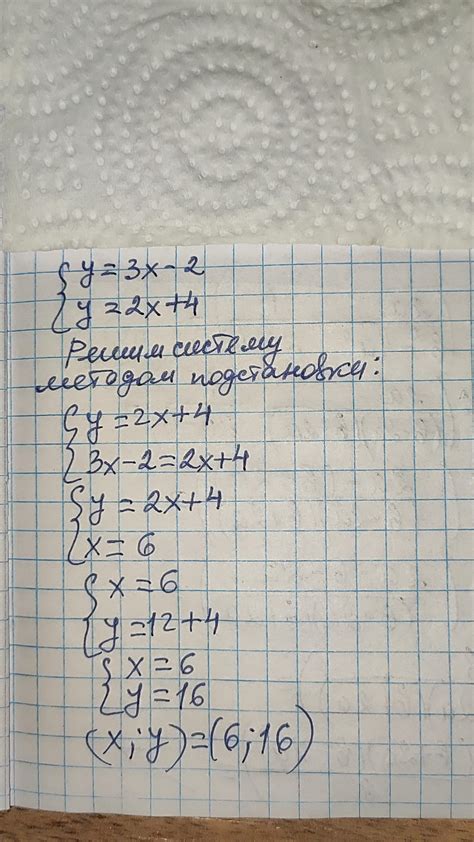 {y=3x-2
{y=2x+4
Решим систему
методом подстановки:
{y=2x+4
{3x-2=2x+4
{y=2x+4
{x=6
{x=6
{y=12+4
{x=6
{y=16
(x;y)=(6;16)